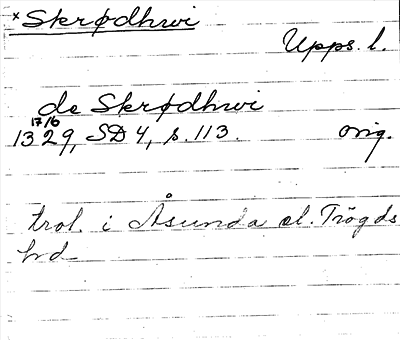 ×Skrødhwi
Upps. l.
de Skrødhwi
17/6
1329, SD 4, s. 113. orig.
trol. i Åsunda el. Trögds
hd